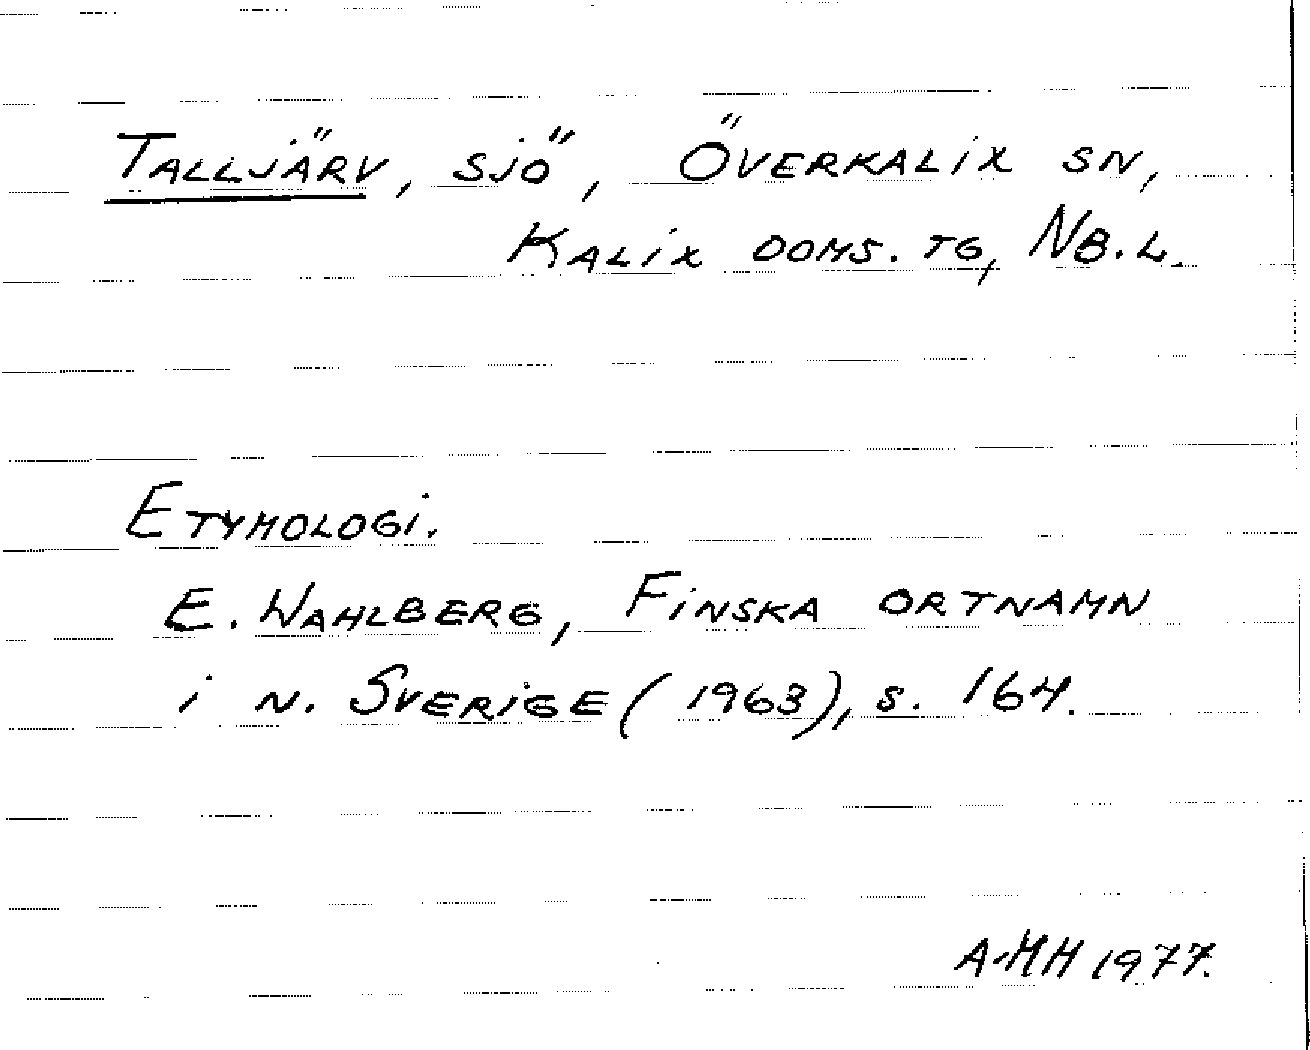 TALLJÄRV, SJÖ, ÖVERKALIX SN,
KALIX DOMS. TG, NB.L.
ETYMOLOGI.
E. WAHLBERG, FINSKA ORTNAMN
i N. SVERIGE (1963), S. 164.
A-MH 1977.